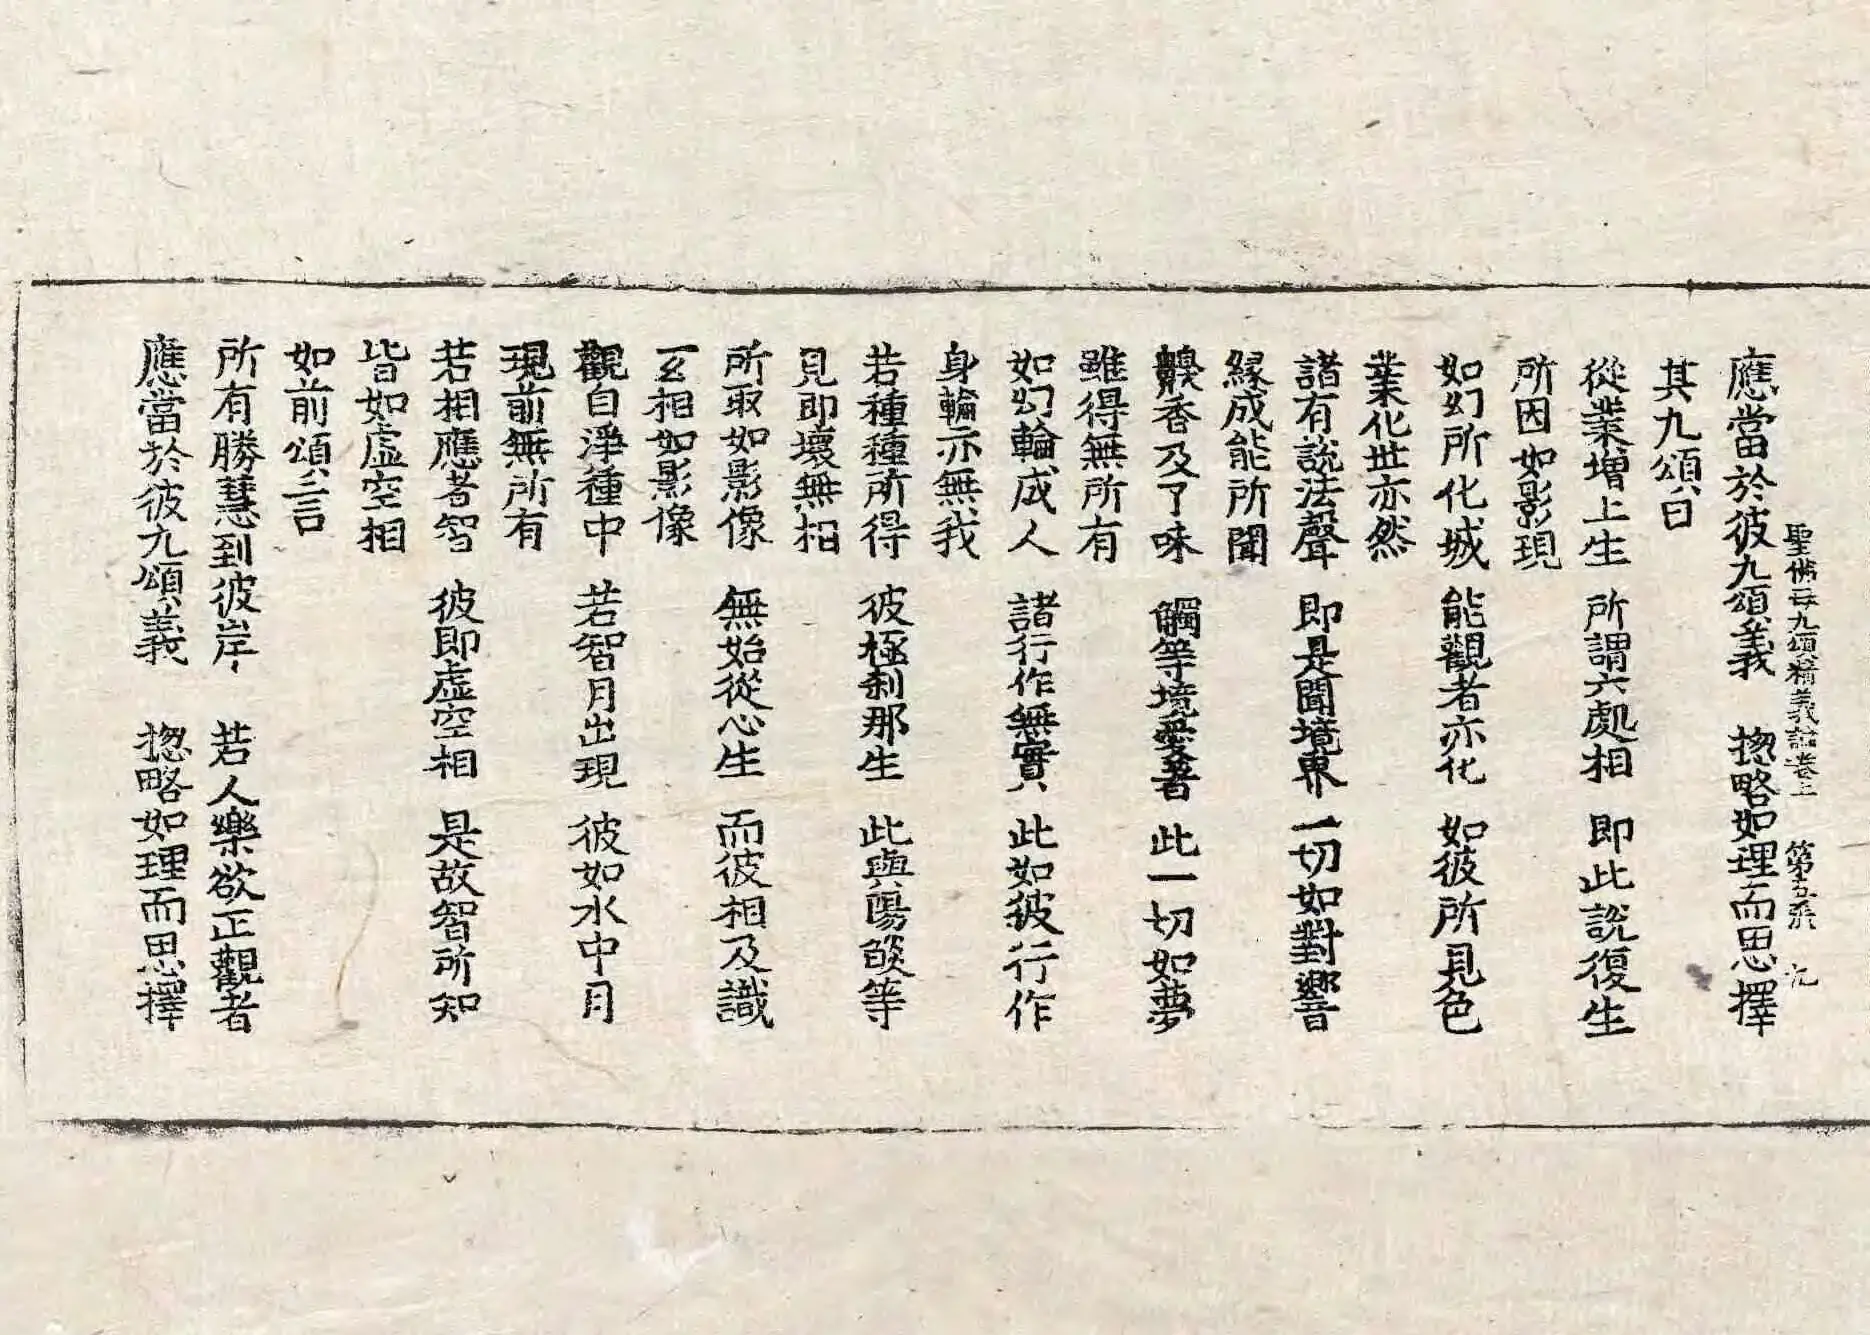 聖佛母九頌精義論卷上　第五張　九
應當於彼九頌義　揔略如理而思擇
其九頌曰
從業增上生　所謂六處相　即此說復生
所因如影現
如幻所化城　能觀者亦化　如彼所見色
業化世亦然
諸有說法聲　即是聞境界　一切如對響
緣成能所聞
齅香及了味　觸等境愛著　此一切如夢
雖得無所有
如幻輪成人　諸行作無實　此如彼行作
身輪亦無我
若種種所得　彼極剎那生　此與陽燄等
見即壞無相
所取如影像　無始從心生　而彼相及識
互相如影像
觀自淨種中　若智月出現　彼如水中月
現前無所有
若相應者智　彼即虛空相　是故智所知
皆如虛空相
如前頌言
所有勝慧到彼岸　若人樂欲正觀者
應當於彼九頌義　揔略如理而思擇